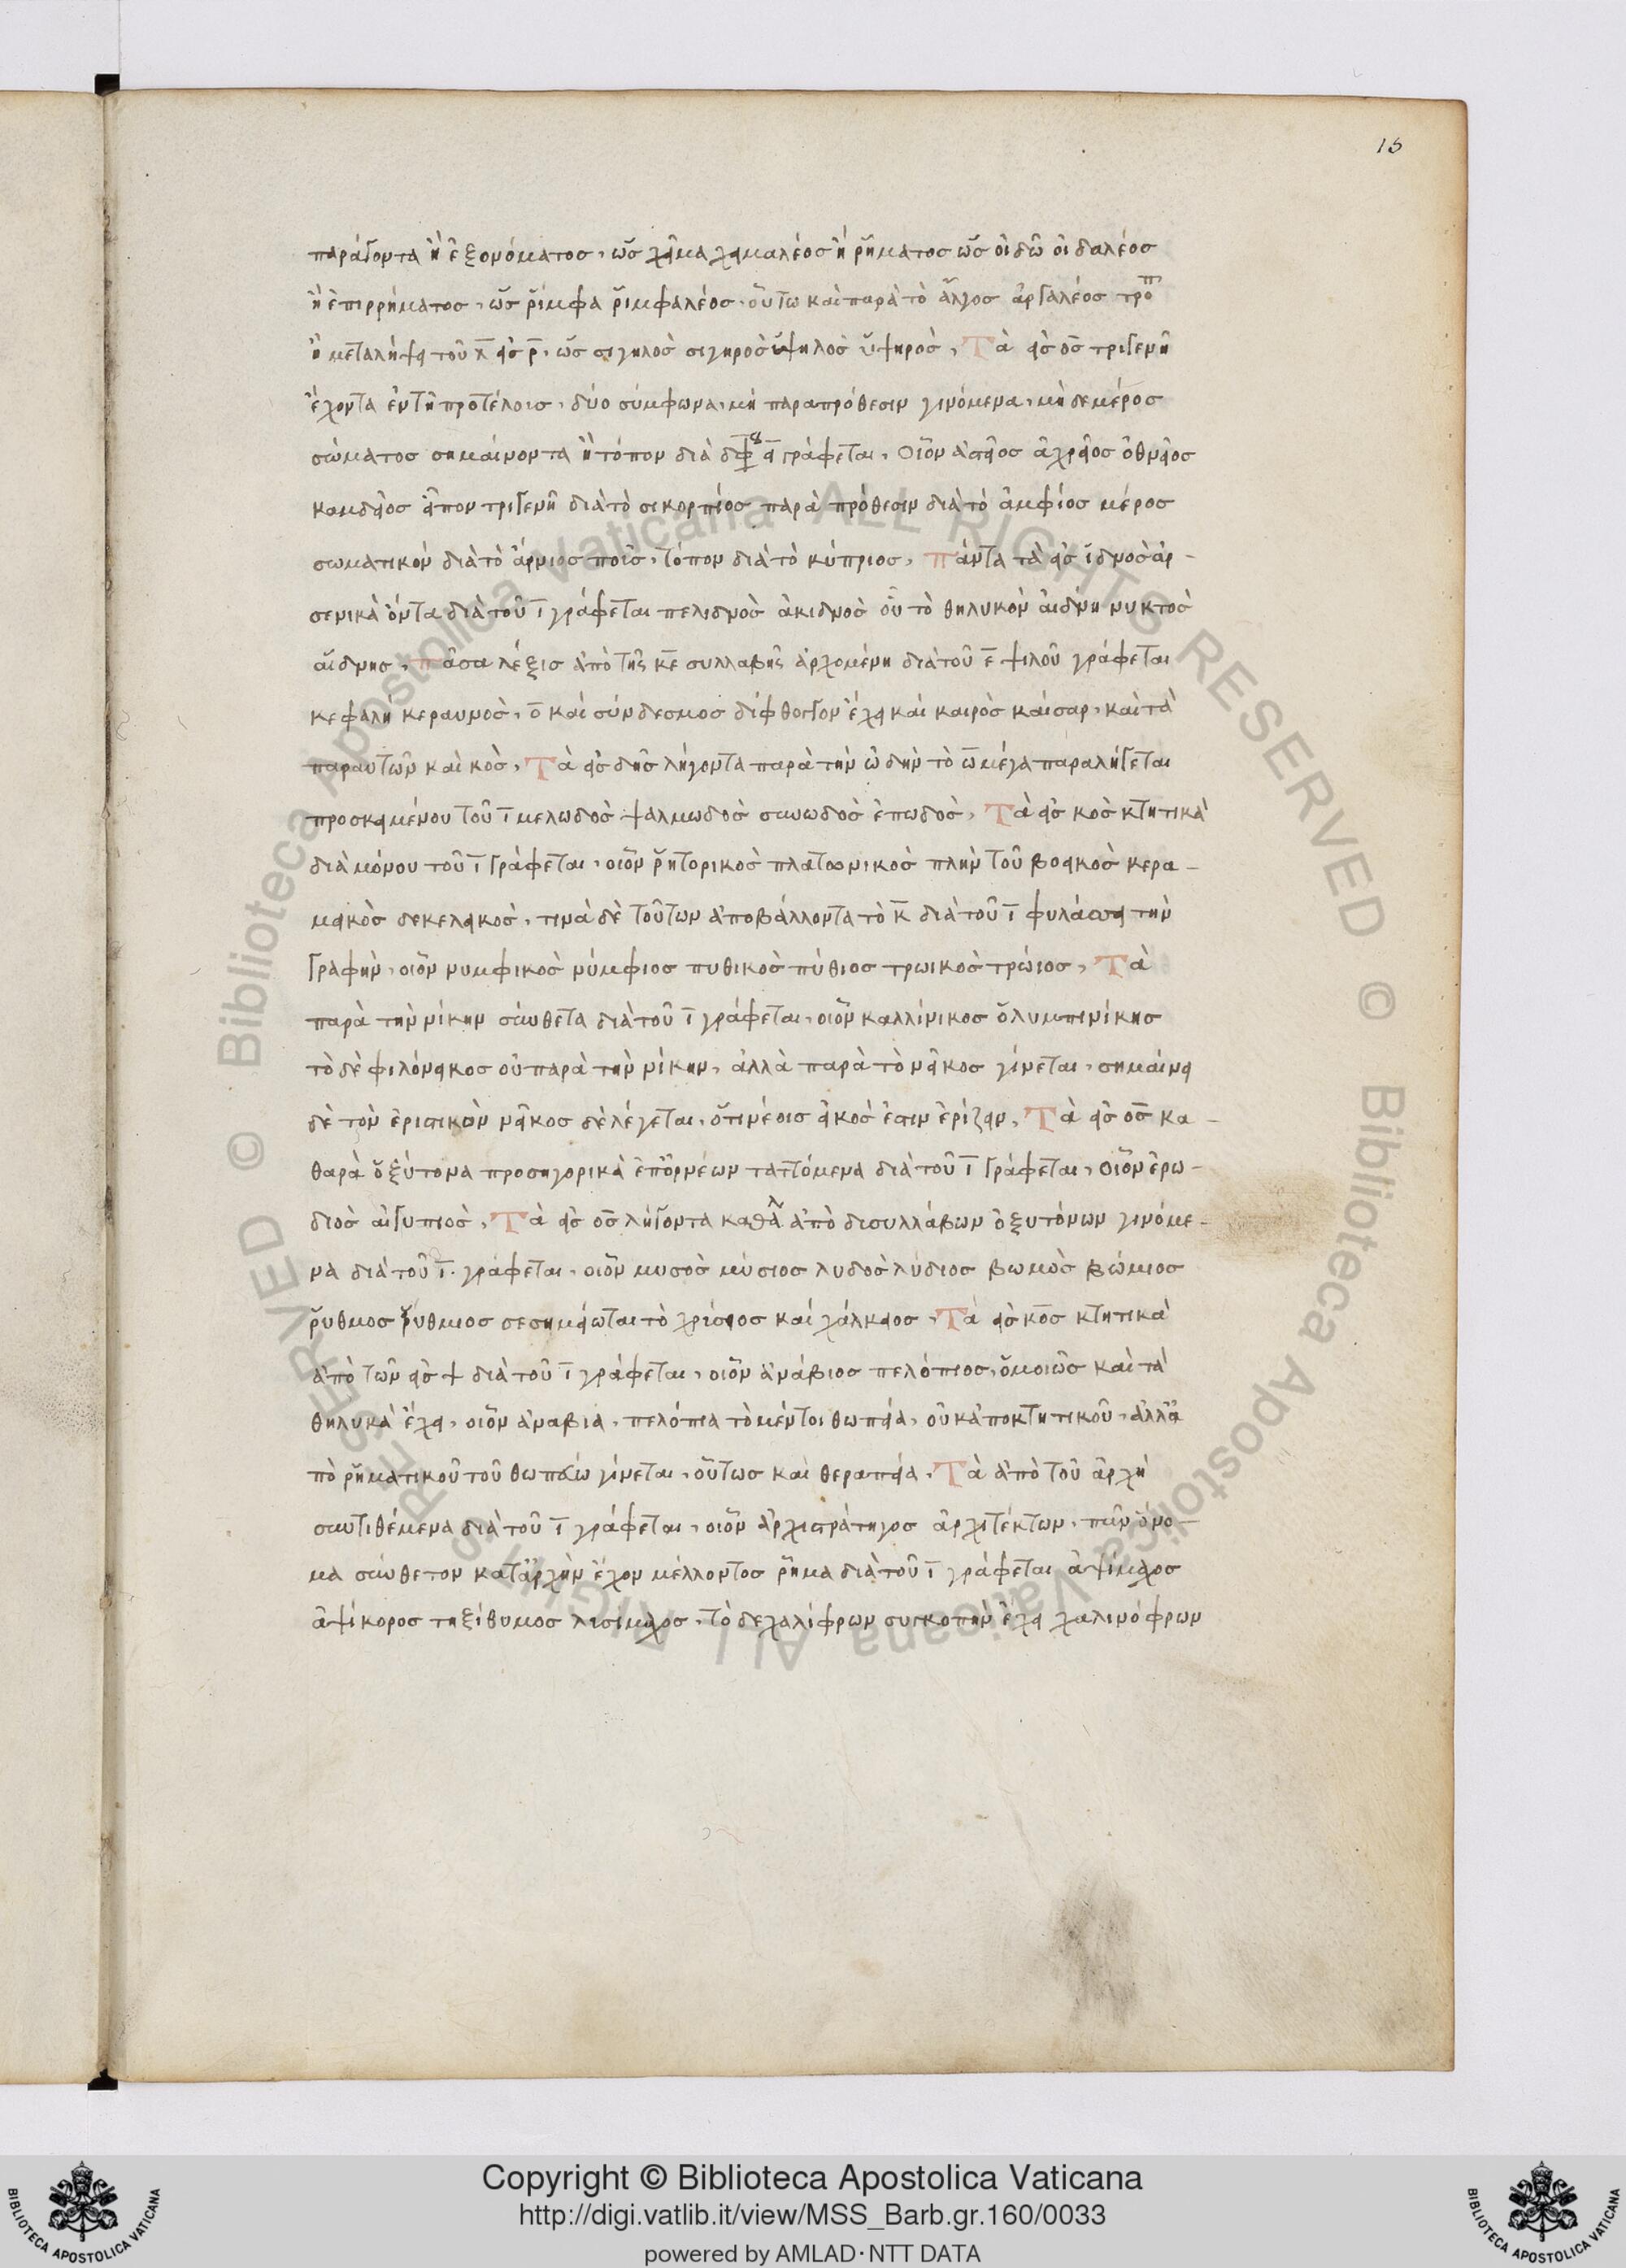 15
παράγοντα ἢ ἐξ ὀνόματος, ὡς χεῖμα χειμαλέος ἢ ῥήματος ὡς οἰδῶ οἰδαλέος
ἢ ἐπιρρήματος, ὡς ῥίμφα ῥιμφαλέος, οὕτω καὶ παρὰ τὸ ἄλγος ἀργαλέος τροπ
ἢ μεταλήψει τοῦ λ εἰς ρ, ὡς σιγηλὸς σιγηρὸς ὑψηλὸς ὑψηρὸς, Τὰ εἰς ος τριγενῆ
ἔχοντα ἐν τῇ προτέλοις, δύο σύμφωνα, μὴ παραπρόθεσιν γινόμενα, μὴ δε μέρος
σώματος σημαίνοντα ἢ τόπον διὰ διφ ει γράφεται, οἷον ἀστεῖος ἀχρεῖος ὀθνεῖος
κανδεῖος εἶπον τριγενῆ διὰ τὸ σκορπίος παρὰ πρόθεσιν διὰ τὸ ἀμφίος μέρος
σωματικὸν διὰ τὸ ἄρνιος ποῖς, τόπον διὰ τὸ κύπριος, πάντα τὰ εἰς ιδνος ἀρ-
σενικὰ ὄντα διὰ τοῦ ι γράφεται πελιδνὸς ἀκιδνὸς οὗ τὸ θηλυκὸν ἀιδνὴ νυκτὸς
αἴδνης, πᾶσα λέξις ἀπὸ τῆς κε συλλαβῆς ἀρχομένη διὰ τοῦ ε ψιλοῦ γράφεται
κεφαλὴ κεραυνὸς, ὁ καὶ σύνδεσμος δίφθογγον ἔχει καὶ καιρὸς καίσαρ, καὶ τὰ
παραυτῶν καὶ κὸς, Τὰ εἰς δης λήγοντα παρὰ τὴν ᾠδὴν τὸ ω μέγα παραλήγεται
προσκειμένου τοῦ ι μελωδὸς ψαλμωδὸς συνωδὸς ἐπωδὸς, Τὰ εἰς κὸς κτητικὰ
διὰ μόνου τοῦ ι γράφεται, οἷον ῥητορικὸς πλατωνικὸς πλὴν τοῦ βοεικὸς κερα-
μεικὸς δεκελεικὸς, τινὰ δὲ τούτων ἀποβάλλοντα τὸ κ διὰ τοῦ ι φυλάσσει τὴν
γραφὴν, οἷον νυμφικὸς νύμφιος πυθικὸς πύθιος τρωικὸς τρώιος, Τὰ
παρὰ τὴν νίκην σύνθετα διὰ τοῦ ι γράφεται, οἷον καλλίνικος ὀλυμπινίκης
τὸ δὲ φιλόνεικος οὐ παρὰ τὴν νίκην, ἀλλὰ παρὰ τὸ νεῖκος γίνεται, σημαίνει
δὲ τὸν ἐριστικὸν νεῖκος δὲ λέγεται, ὅτι νέοις εἰκός ἐστιν ἐρίζειν, Τὰ εἰς ος κα-
θαρὰ ὀξύτονα προσηγορικὰ ἐπ ὀρνέων ταττόμενα διὰ τοῦ ι γράφεται, οἷον ἐρω-
διὸς αἰγυπιὸς, Τὰ εἰς ος λήγοντα καθα ἀπὸ δισυλλάβων ὀξυτόνων γινόμε-
να διὰ τοῦ ι γράφεται, οἷον μυσὸς μύσιος λυδὸς λύδιος βωμὸς βώμιος
ῥυθμος ῥύθμιος σεσημείωται τὸ χρύσειος καὶ χάλκειος, Τὰ εἰς κος κτητικὰ
ἀπὸ τῶν εἰς ψ διὰ τοῦ ι γράφεται, οἷον ἀράβιος πελόπιος, ὁμοιῶς καὶ τὰ
θηλυκὰ ἔχει, οἷον ἀραβια, πελόπια τὸ μέντοι θωπεία, οὐκ ἀπο κτητικοῦ, ἀλλ ἀ
πὸ ῥηματικοῦ τοῦ θωπεύω γίνεται, οὕτως καὶ θεραπεία, Τὰ ἀπὸ τοῦ ἀρχὴ
συντιθέμενα διὰ τοῦ ι γράφεται, οἷον ἀρχιστράτηγος ἀρχιτέκτων, πᾶν ὄνο-
μα σύνθετον κατ ἀρχὴν ἔχον μέλλοντος ῥῆμα διὰ τοῦ ι γράφεται ἀψίμαχος
ἀψίκορος τηξίθυμος λυσίμαχος, τὸ δε χαλίφρων συγκοπὴν ἔχει χαλινόφρων
Copyright © Biblioteca Apostolica Vaticana
http://digi.vatlib.it/view/MSS_Barb.gr.160/0033
powered by AMLAD·NTT DATA